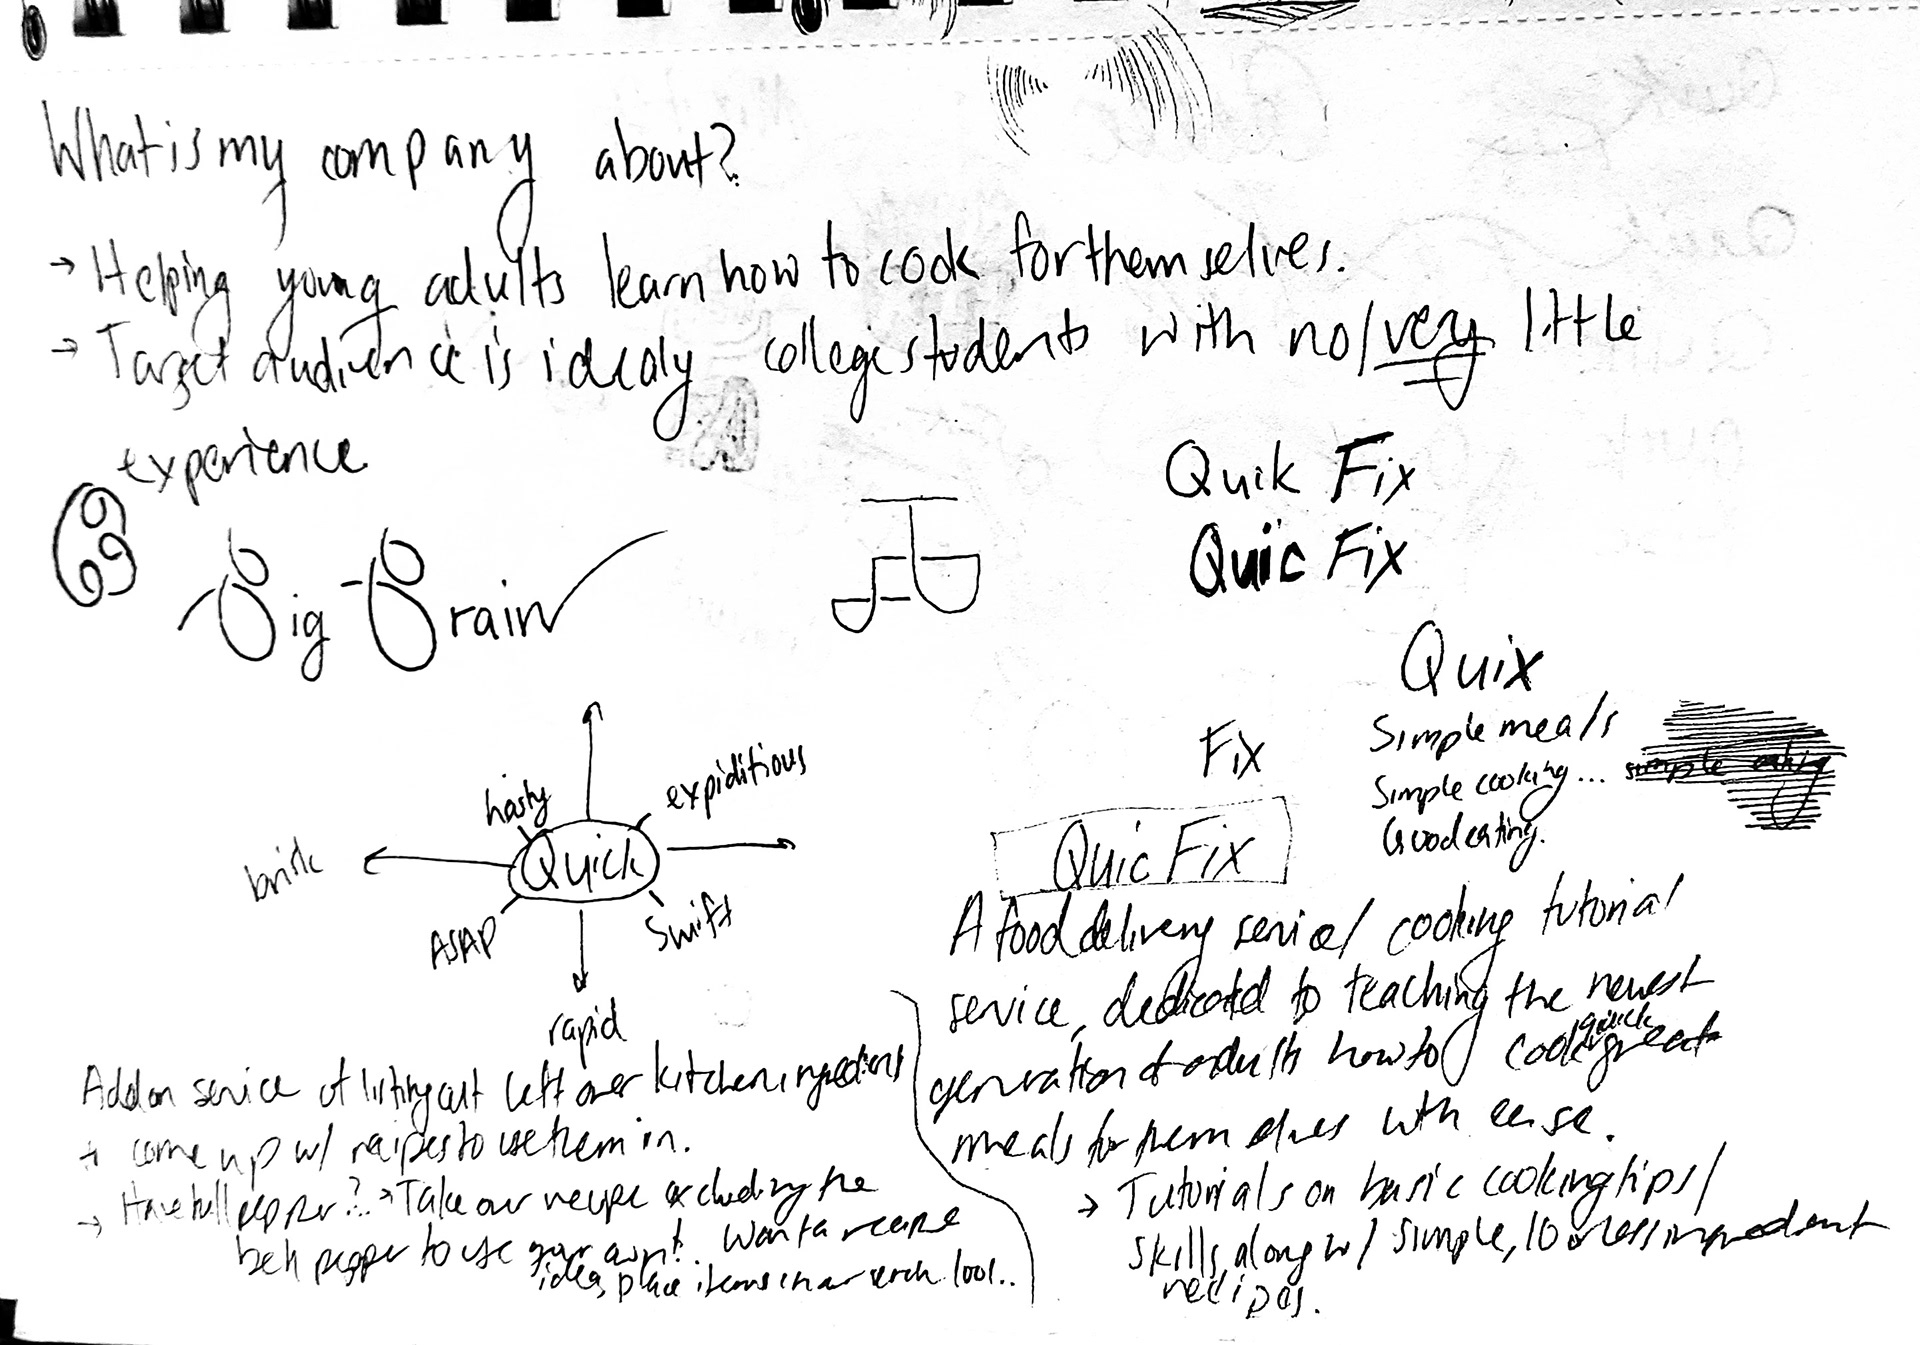 What is my company about?
→ Helping young adults learn how to cook for themselves.
→ Target audience is idealy college students with no/very little
experience
Big Brain
Quik Fix
Quic Fix
Quix
Fix
Simple meals
Simple cooking... simple eating
Good eating.
Quic Fix
hasty
expiditious
brisk
Quick
ASAP
Swift
rapid
A food delivery service/ cooking tutorial
service, dedicated to teaching the newest
generation of adults how to cook quick great
meals for themselves with ease.
→ Tutorials on basic cooking tips/
skills, along w/ simple, 10 or less ingredient
recipes.
Add on service of listing out left over kitchen ingredients
+ come up w/ recipes to use them in.
→ Have bell pepper? → Take our recipe excluding the
bell pepper to use your own! Want a recipe
idea, place items in our search tool..